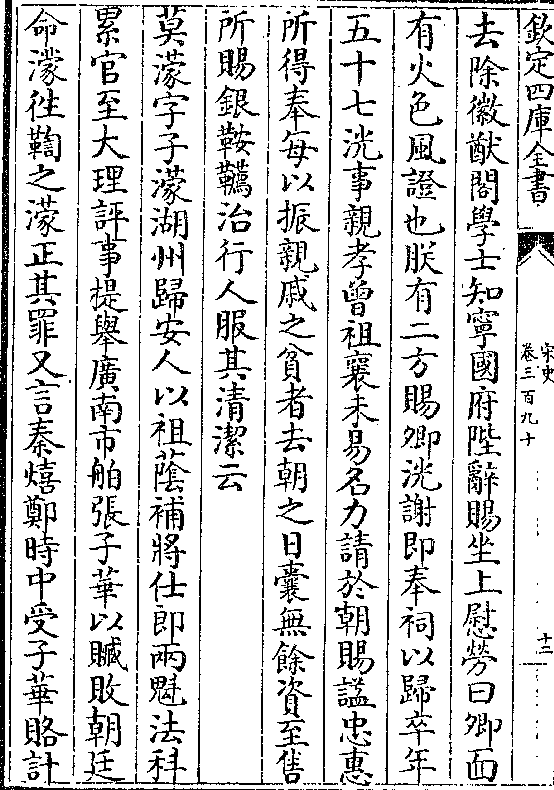 欽定四庫全書
宋史
卷三百九十
十二
去除徽猷閣學士知寧國府陛辭賜坐上慰勞曰卿面
有火色風證也朕有二方賜卿洸謝即奉祠以歸卒年
五十七洸事親孝曾祖襄未易名力請於朝賜諡忠惠
所得奉每以振親戚之貧者去朝之日囊無餘資至售
所賜銀鞍韉治行人服其清潔云
莫濛字子濛湖州歸安人以祖蔭補將仕郎兩魁法科
累官至大理評事提舉廣南市舶張子華以贓敗朝廷
命濛徃鞫之濛正其罪又言秦熺鄭時中受子華賂計